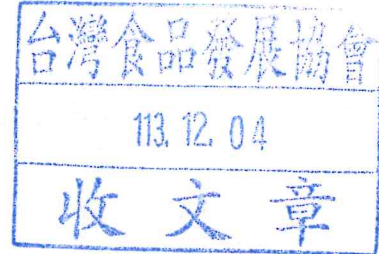 台灣食品發展協會
113. 12. 04
收文章